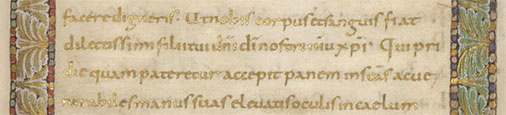 facere digneris. Ut nobis corpus et sanguis fiat
dilectissimi filii tui dnī dī nostri ihū xpī. Qui pri
die quam pateretur accepit panem in scās ac ve
nerabiles manus suas elevatis oculis in caelum